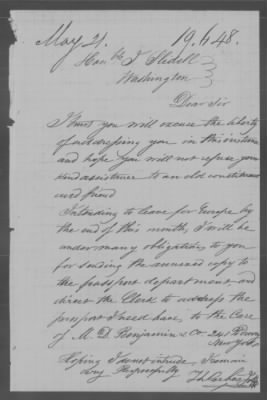 May 21. 19.648.
Honble J Slidell
Washington
Dear Sir
I trust you will excuse the liberty
of addressing you in this instance
and hope you will not refuse your
kind assistance to an old constituent
and friend
Intending to leave for Europe by
the end of this month, I will be
under many obligations to you
for sending the annexed copy to
the passport department and
direct the Clerk to address the
passport I need have, to the Care
of M. D. Benjamin & Co 241
New York
Hoping I do not intrude I remain
Very Respectfully